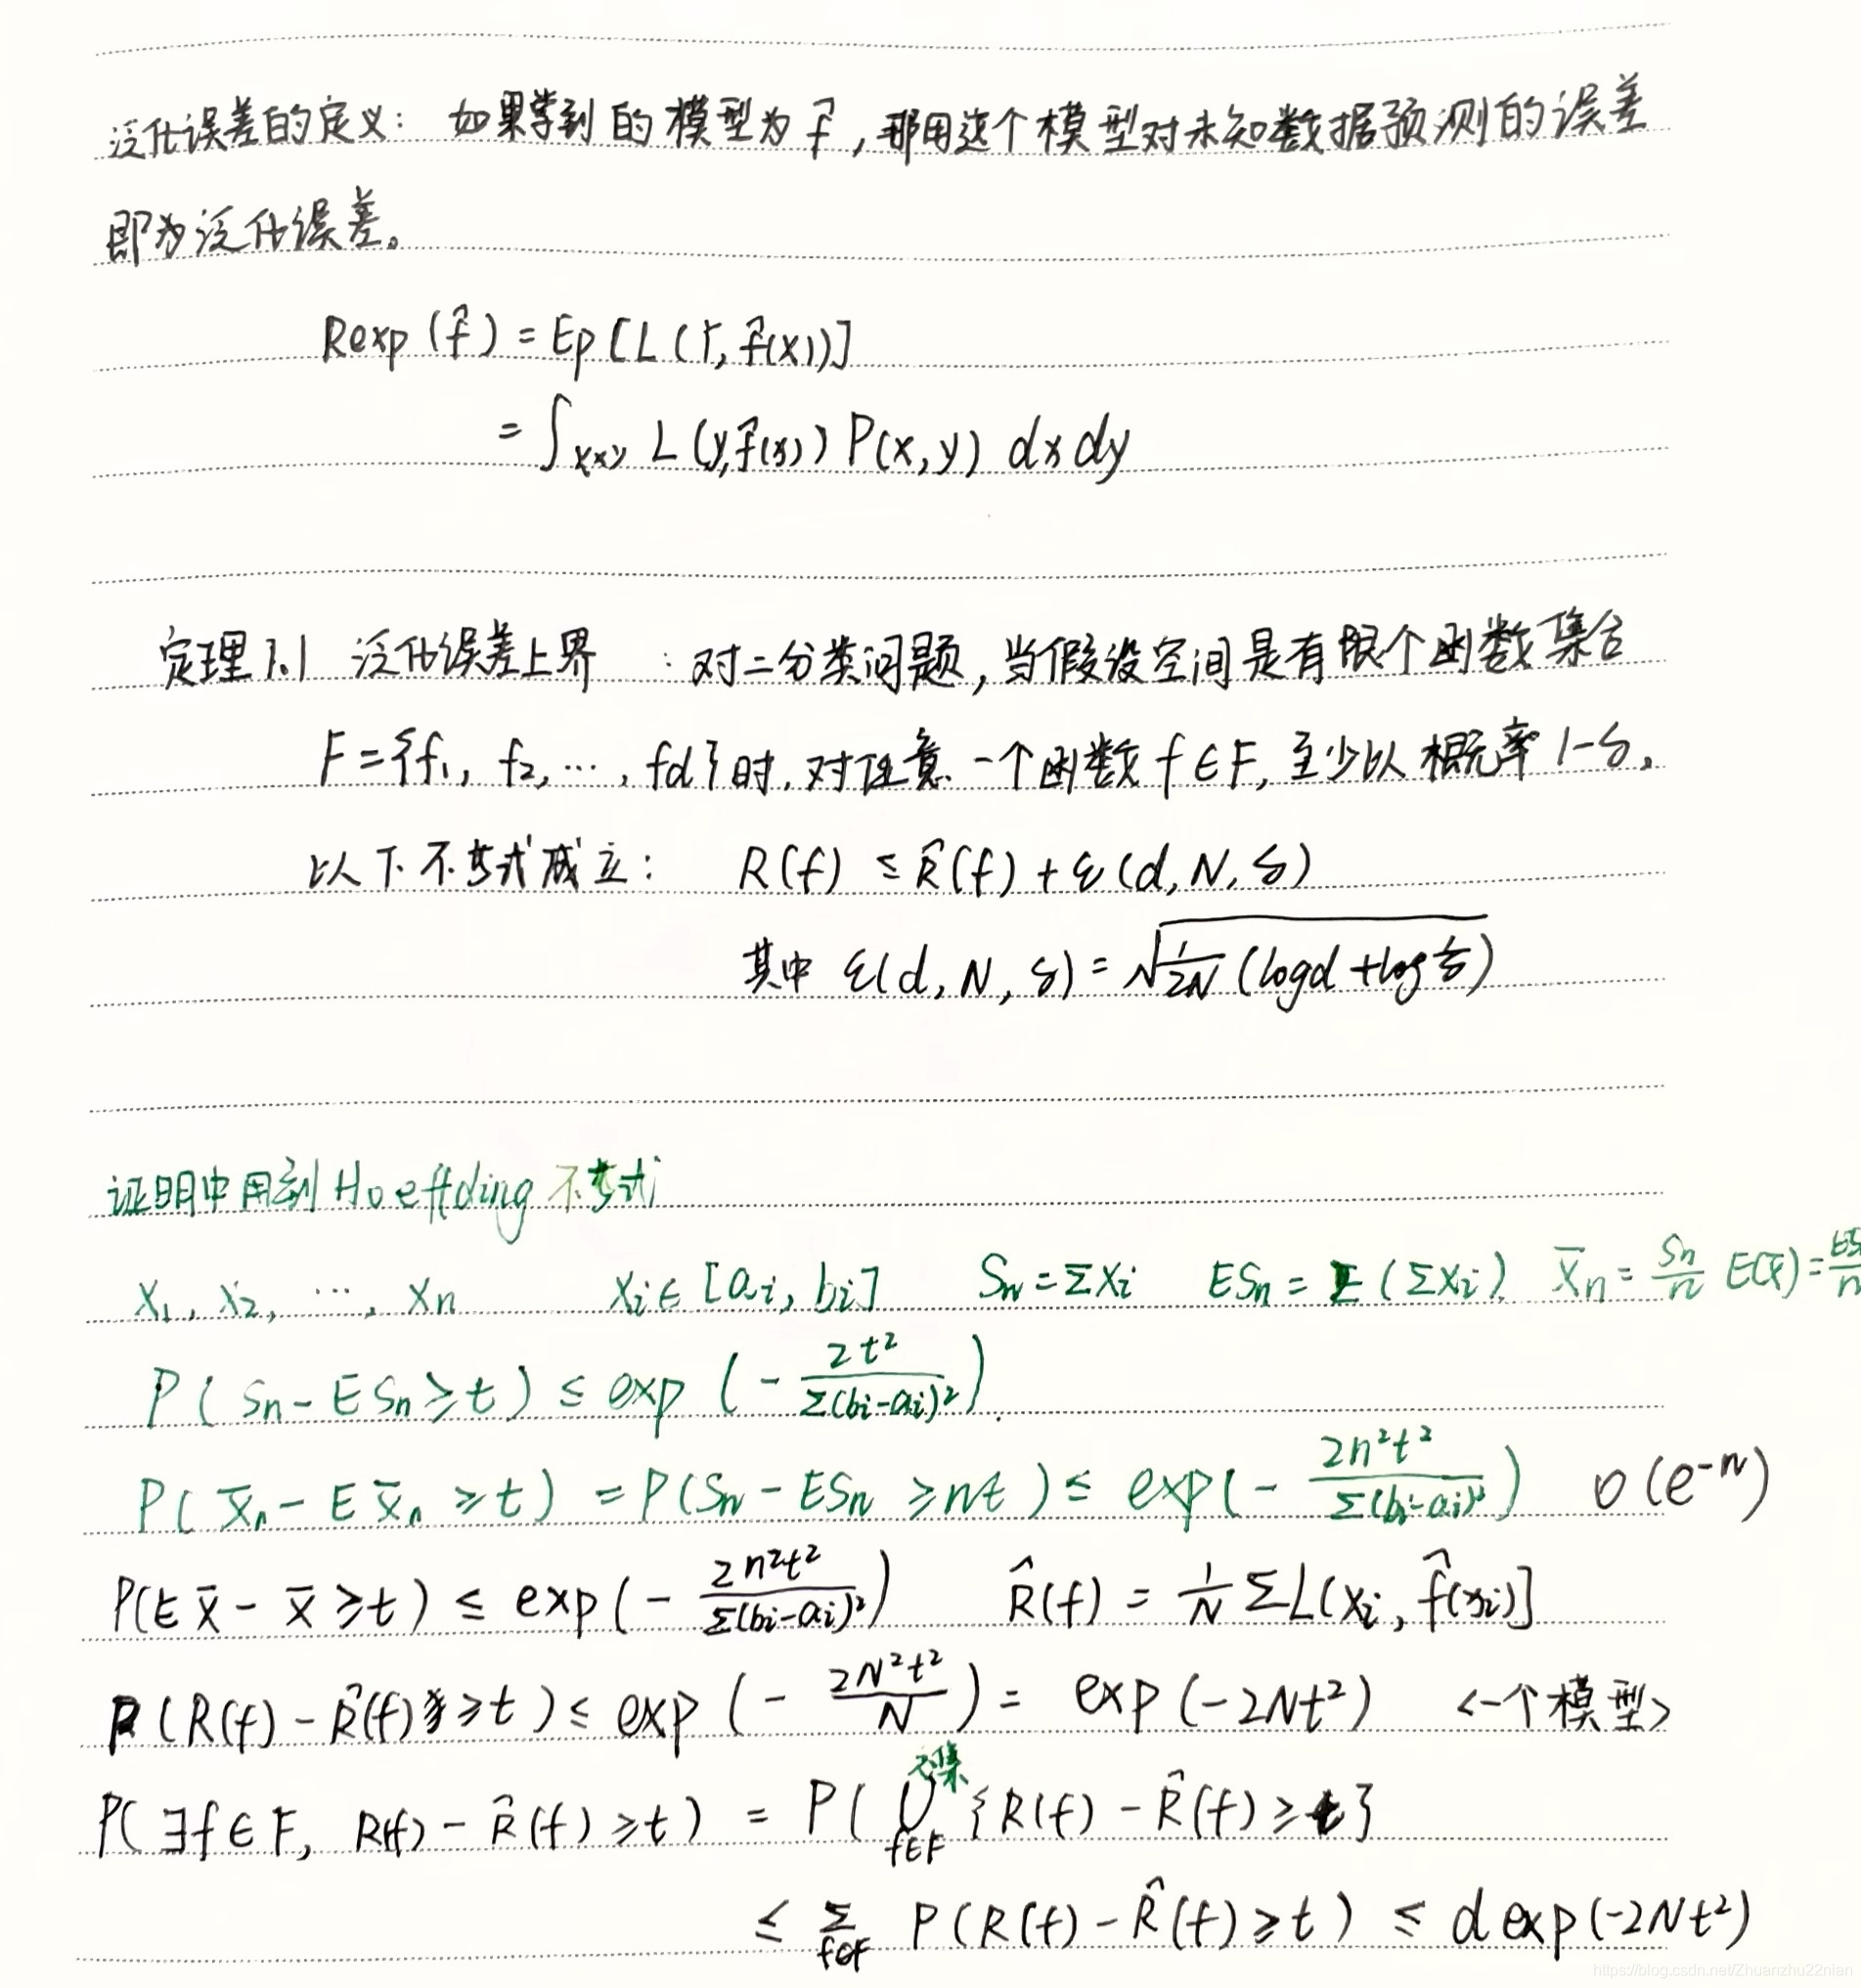 泛化误差的定义: 如果学到的模型为 f̂, 那用这个模型对未知数据预测的误差
即为泛化误差。
Rexp (f̂) = Ep [L(Y, f̂(X))]
= ∫x×y L(y, f̂(x)) P(x, y) dx dy
定理1.1 泛化误差上界 : 对二分类问题, 当假设空间是有限个函数集合
F = {f₁, f₂, …, fd}时, 对任意一个函数 f∈F, 至少以概率 1-δ,
以下不等式成立: R(f) ≤ R̂(f) + ε(d, N, δ)
其中 ε(d, N, δ) = √(1/2N (log d + log 1/δ))
证明中用到 Hoeffding 不等式
X₁, X₂, …, Xn Xi ∈ [ai, bi] Sn = ΣXi ESn = E(ΣXi) X̄n = Sn/n E(X̄) = ESn/n
P(Sn - ESn ≥ t) ≤ exp(- 2t²/Σ(bi-ai)²)
P(X̄n - EX̄n ≥ t) = P(Sn - ESn ≥ nt) ≤ exp(- 2n²t²/Σ(bi-ai)²) O(e⁻ᴺ)
P(EX̄ - X̄ ≥ t) ≤ exp(- 2n²t²/Σ(bi-ai)²) R̂(f) = 1/N ΣL(xi, f̂(xi)]
P(R(f) - R̂(f) ≥ t) ≤ exp(- 2N²t²/N) = exp(-2Nt²) <一个模型>
P(∃f∈F, R(f) - R̂(f) ≥ t) = P(⋃f∈F {R(f) - R̂(f) ≥ t}
≤ Σf∈F P(R(f) - R̂(f) ≥ t) ≤ d exp(-2Nt²)
https://blog.csdn.net/Zhuanzhu22nian